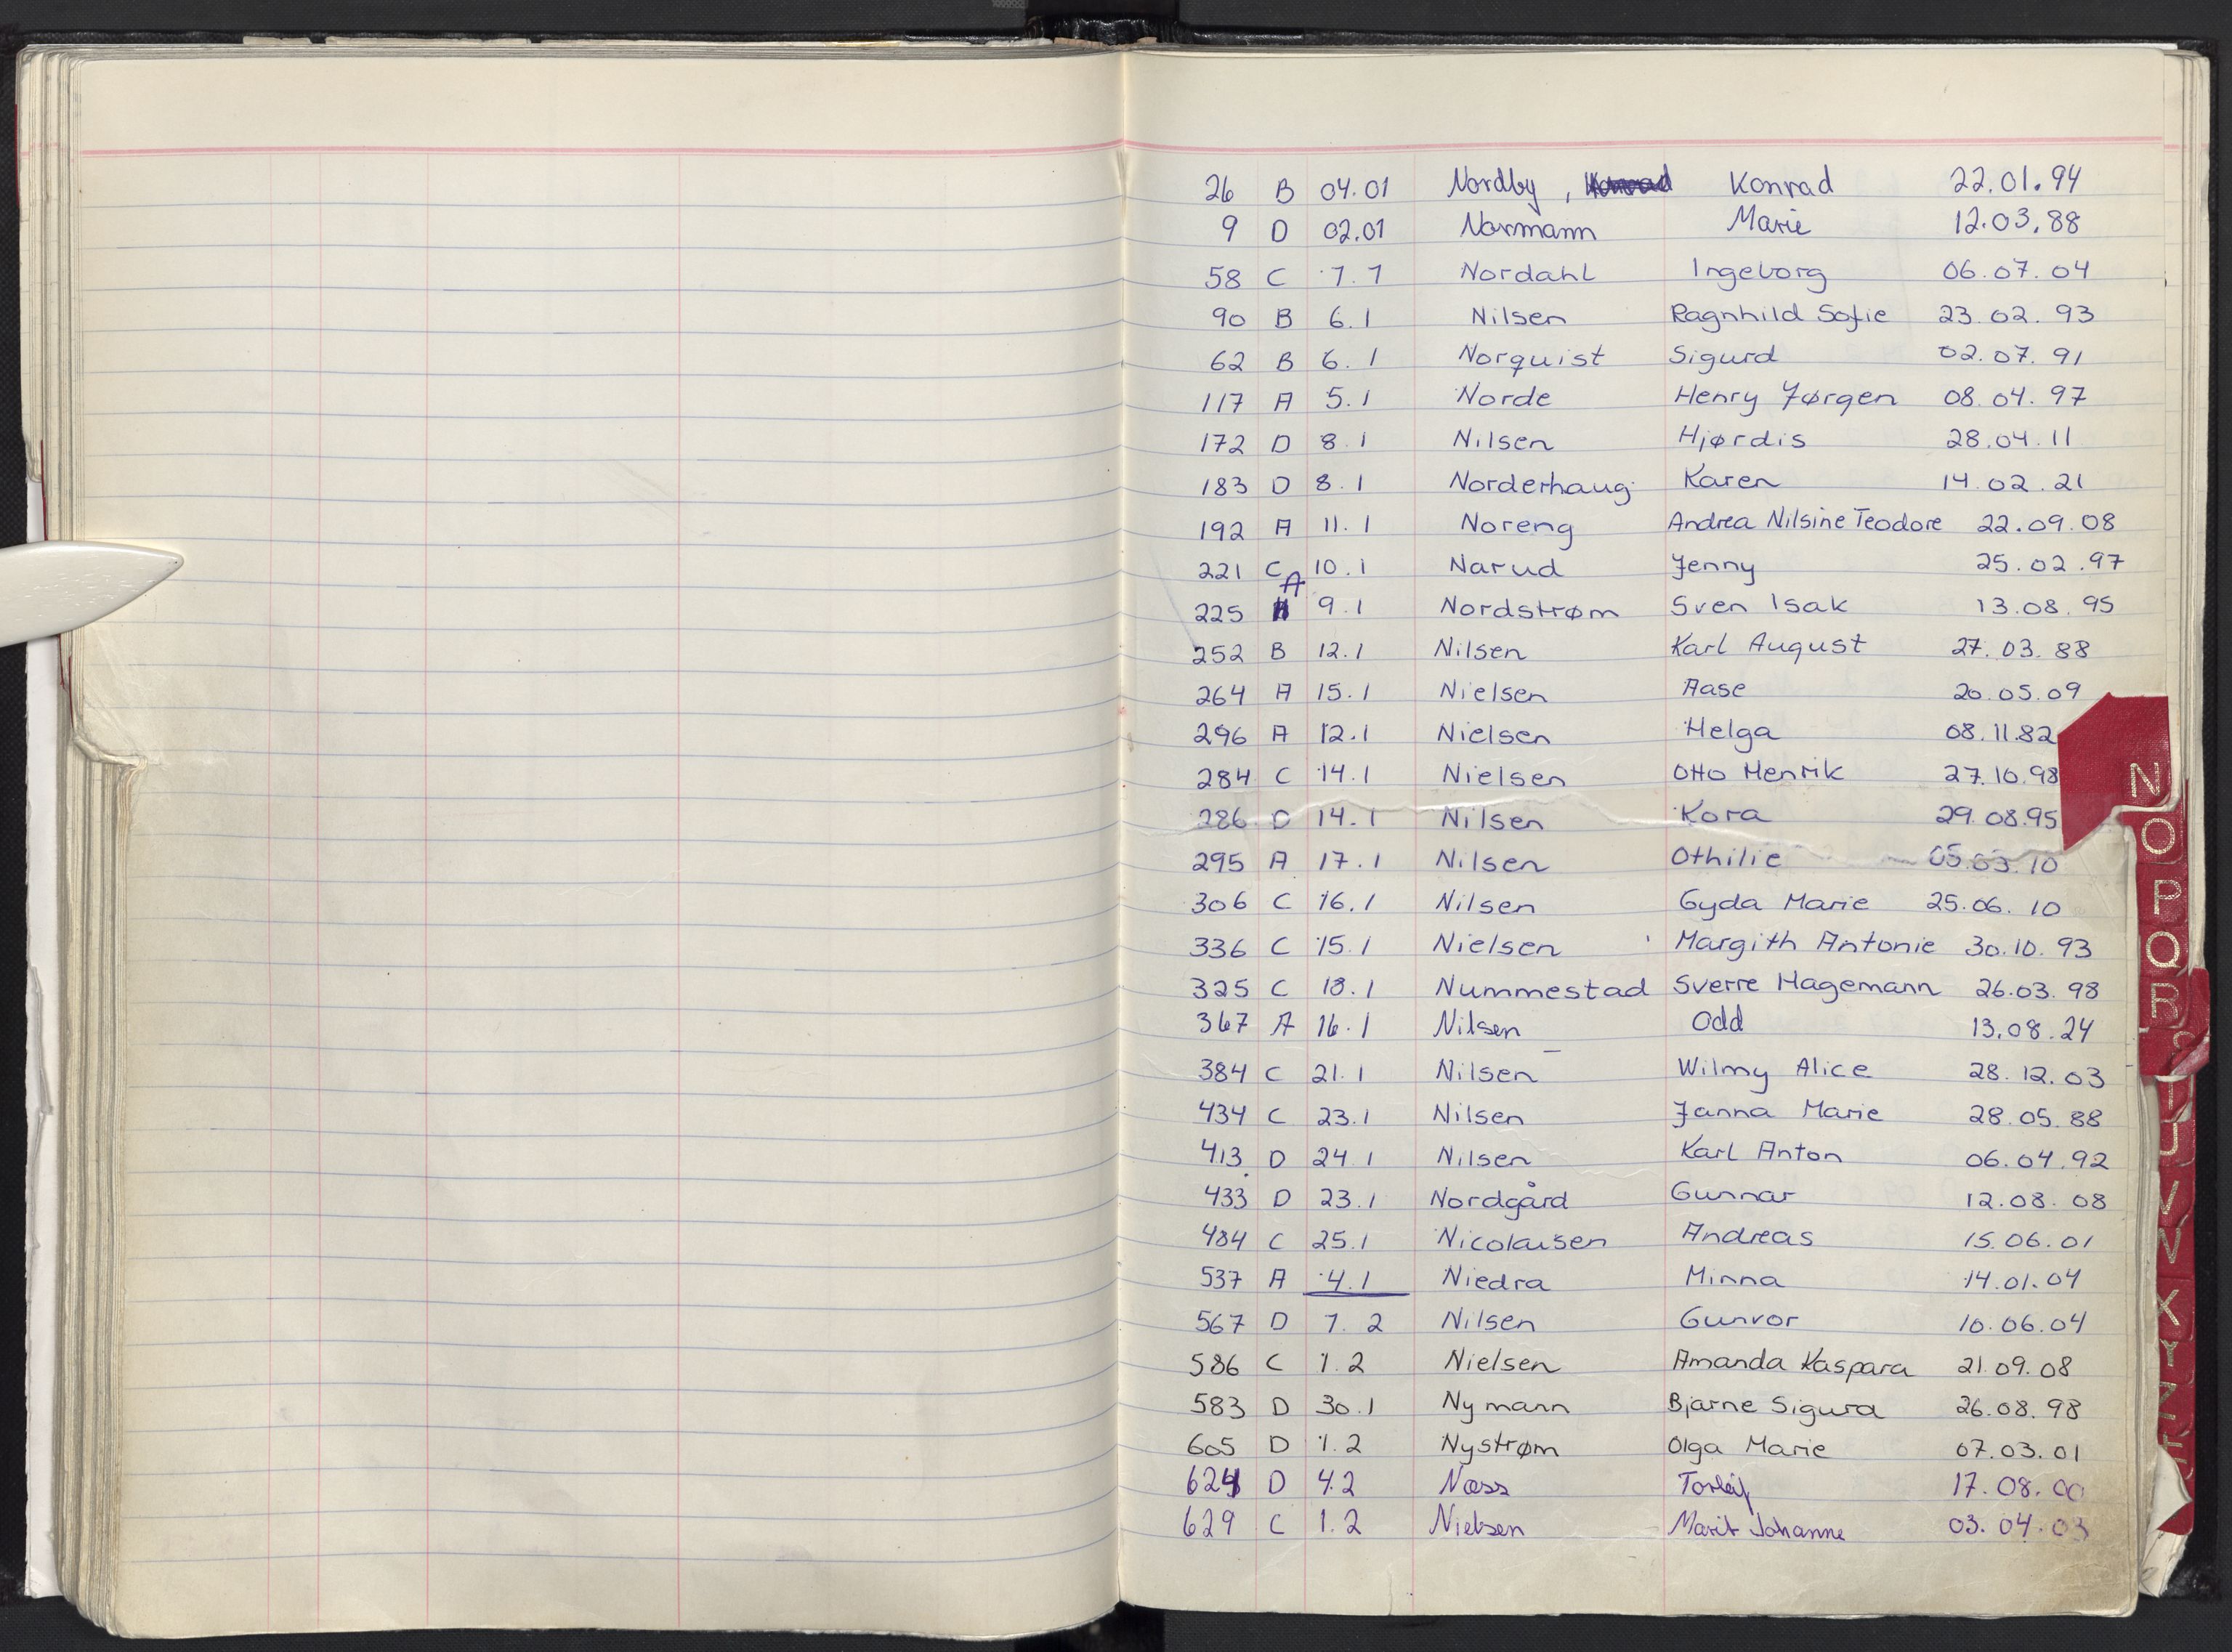 26 B 04.01 Nordby, Konrad 22.01.94
9 D 02.01 Normann Marie 12.03.88
58 C 7.1 Nordahl Ingeborg 06.07.04
90 B 6.1 Nilsen Ragnhild Sofie 23.02.93
62 B 6.1 Norquist Sigurd 02.07.91
117 A 5.1 Norde Henry Jørgen 08.04.97
172 D 8.1 Nilsen Hjørdis 28.04.11
183 D 8.1 Norderhaug Karen 14.02.21
192 A 11.1 Noreng Andrea Nilsine Teodore 22.09.08
221 C 10.1 Narud Jenny 25.02.97
225 A 9.1 Nordstrøm Sven Isak 13.08.95
252 B 12.1 Nilsen Karl August 27.03.88
264 A 15.1 Nielsen Aase 20.05.09
296 A 12.1 Nielsen Helga 08.11.82
284 C 14.1 Nielsen Otto Henrik 27.10.98
286 D 14.1 Nilsen Kora 29.08.95
295 A 17.1 Nilsen Othilie 05.03.10
306 C 16.1 Nilsen Gyda Marie 25.06.10
336 C 15.1 Nielsen Margith Antonie 30.10.93
325 C 18.1 Nummestad Sverre Hagemann 26.03.98
367 A 16.1 Nilsen Odd 13.08.24
384 C 21.1 Nilsen Wilmy Alice 28.12.03
434 C 23.1 Nilsen Janna Marie 28.05.88
413 D 24.1 Nilsen Karl Anton 06.04.92
433 D 23.1 Nordgård Gunnar 12.08.08
484 C 25.1 Nicolaisen Andreas 15.06.01
537 A 4.1 Niedra Minna 14.01.04
567 D 1.2 Nilsen Gunvor 10.06.04
586 C 1.2 Nielsen Amanda Kaspara 21.09.08
583 D 30.1 Nymann Bjarne Sigurd 26.08.98
605 D 1.2 Nystrøm Olga Marie 07.03.01
624 D 4.2 Næss Torleif 17.08.00
629 C 1.2 Nielsen Marit Johanne 03.04.03
N
O
P
Q
R
U
V
X
Y
Z